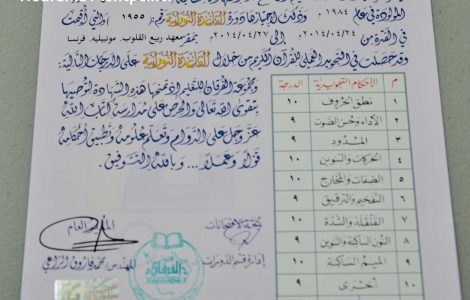 المولود في عام ١٩٨٤ وذلك لاجتيازها دورة القاعدة النورانية رقم ١٩٥٥ والتي أقيمت
في الفترة من ٢٠١٤/٠٤/٢٤ إلى ٢٠١٤/٠٤/٢٧ بمقر معهد ربيع القلوب. مونبيليه. فرنسا
وقد حصلت في التجويد العملي للقرآن الكريم من خلال القاعدة النورانية على الدرجات التالية:
ومجموعة الفرقان للتعليم إذ تمنحها هذه الشهادة لتوصيها
بتقوى الله تعالى والحرص على مدارسة كتاب الله
عز وجل على الدوام وتعلم علومه وتطبيق أحكامه
قولاً وعملاً... وبالله التوفيق
م الأحكام التجويدية الدرجة
١ نطق الحروف ١٠
٢ الأداء وحسن الصوت ٩
٣ المدود ٩
٤ الحركات والتنوين ١٠
٥ الصفات والمخارج ١٠
٦ التفخيم والترقيق ٩
٧ القلقلة والشدة ١٠
٨ النون الساكنة والتنوين ٩
٩ الميم الساكنة ١٠
١٠ أخرى ٩
لجنة الامتحانات
إدارة قسم الدورات
المدير العام
المهندس محمد فاروق الراعي
الفرقان